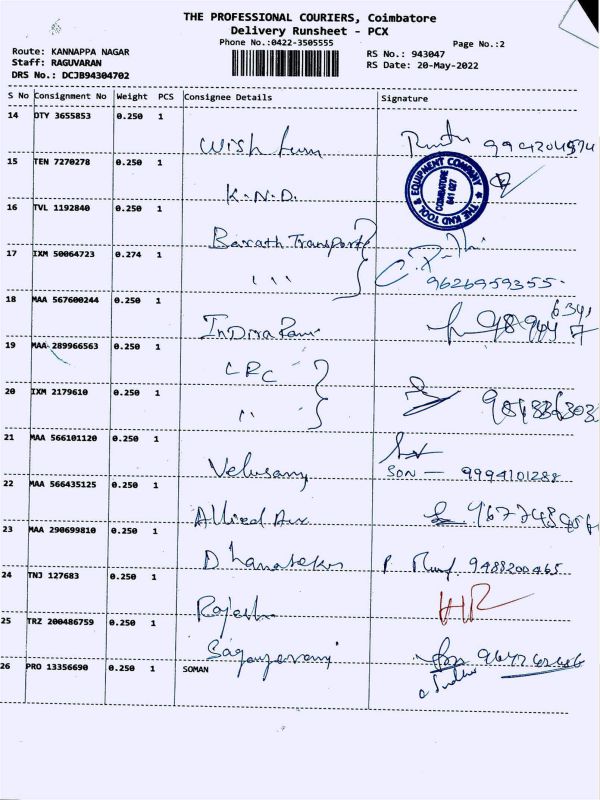 THE PROFESSIONAL COURIERS, Coimbatore
Delivery Runsheet - PCX
Phone No.:0422-3505555
Page No.:2
Route: KANNAPPA NAGAR
RS No.: 943047
Staff: RAGUVARAN
RS Date: 20-May-2022
DRS No.: DCJB94304702
S No Consignment No Weight PCS Consignee Details Signature
14 DTY 3655853 0.250 1
Wish
15 TEN 7270278 0.250 1
K.N.D.
THE KND TOOL & EQUIPMENT COMPANY
COIMBATORE
641 027
16 TVL 1192840 0.250 1
Barath Transport
17 IXM 50064723 0.274 1
9626959355
18 MAA 567600244 0.250 1
Indira
19 MAA 289966563 0.250 1
LRC
20 IXM 2179610 0.250 1
21 MAA 566101120 0.250 1
Velusamy SON — 9994101288
22 MAA 566435125 0.250 1
Allied
23 MAA 290699810 0.250 1
Dhanasekar 9488200465
24 TNJ 127683 0.250 1
Rajesh HR
25 TRZ 200486759 0.250 1
26 PRO 13356690 0.250 1 SOMAN